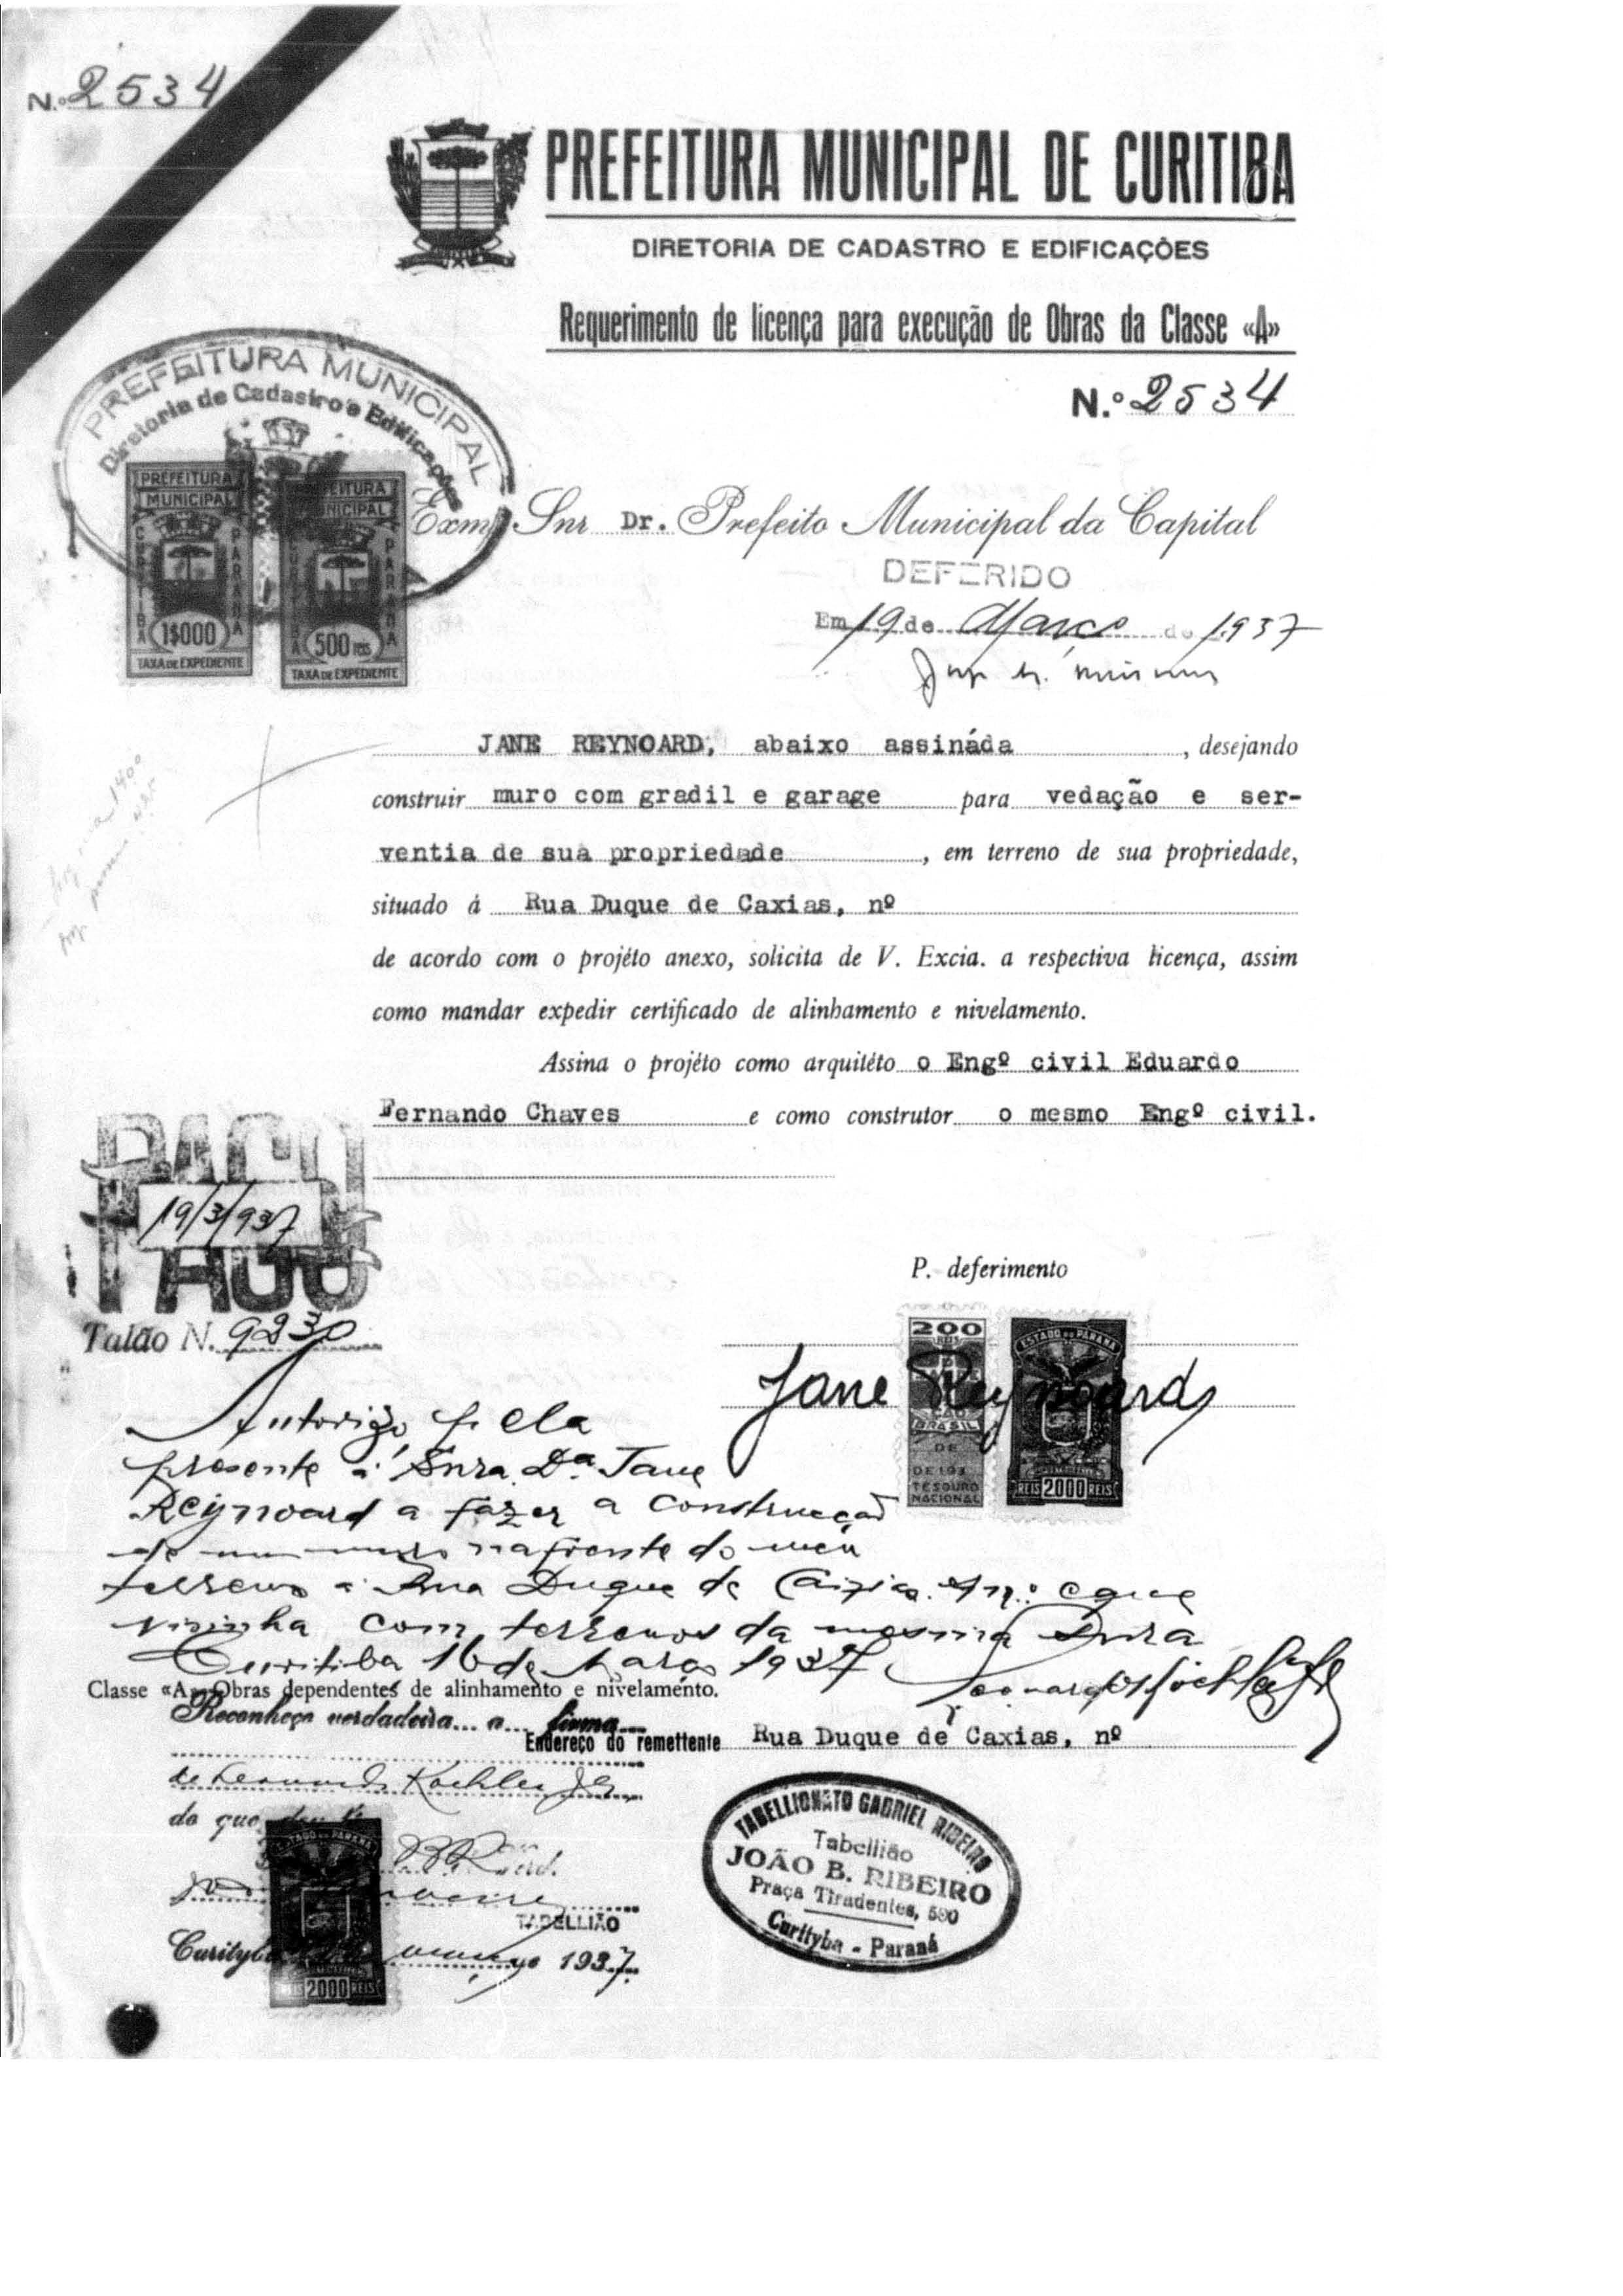 N.º 2534
PREFEITURA MUNICIPAL DE CURITIBA
DIRETORIA DE CADASTRO E EDIFICAÇÕES
Requerimento de licença para execução de Obras da Classe «A»
N.º 2534
PREFEITURA MUNICIPAL
Diretoria de Cadastro e Edificações
PREFEITURA
MUNICIPAL
CURITIBA
PARANÁ
1$000
TAXA DE EXPEDIENTE
PREFEITURA
MUNICIPAL
CURITIBA
PARANÁ
500 REIS
TAXA DE EXPEDIENTE
Exmº Snr Dr. Prefeito Municipal da Capital
DEFERIDO
Em 19 de Março de 1937
JANE REYNOARD, abaixo assináda, desejando
construir muro com gradil e garage para vedação e ser-
ventia de sua propriedade, em terreno de sua propriedade,
situado á Rua Duque de Caxias, nº
de acordo com o projéto anexo, solicita de V. Excia. a respectiva licença, assim
como mandar expedir certificado de alinhamento e nivelamento.
Assina o projéto como arquitéto o Engº civil Eduardo
Fernando Chaves e como construtor o mesmo Engº civil.
PAGO
19/3/937
PAGO
Talão N. 9230
P. deferimento
Jane Reynoard
200
REIS
BRASIL
DE
DE 193
TESOURO
NACIONAL
ESTADO DO PARANÁ
REIS 2000 REIS
Autorizo pela
presente á Snra. Dª Jane
Reynoard a fazer a construcção
de um muro na frente do meu
terreno á Rua Duque de Caixias. Nº. e que
visinha com terrenos da mesma Snra
Curitiba 16 de Março 1937
Classe «A» Obras dependentes de alinhamento e nivelamento.
Reconheço verdadeira a firma
Endereço do remettente Rua Duque de Caxias, nº
de Leonardo Koehler Jr.
do que dou fé
ESTADO DO PARANÁ
TABELLIÃO
Curityba março 1937
REIS 2000 REIS
TABELLIONATO GABRIEL RIBEIRO
Tabellião
JOÃO B. RIBEIRO
Praça Tiradentes, 580
Curityba - Paraná